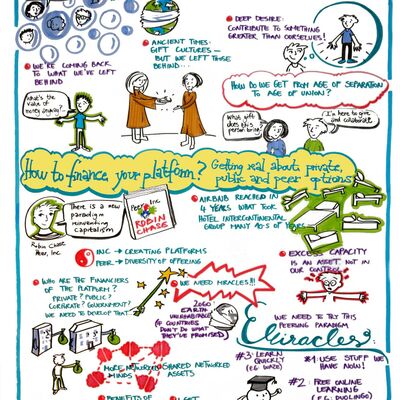 DEEP DESIRE:
CONTRIBUTE TO SOMETHING
GREATER THAN OURSELVES!
ANCIENT TIMES:
GIFT CULTURES -
BUT WE LEFT THOSE
BEHIND...
WE'RE COMING BACK
TO WHAT WE'VE LEFT
BEHIND
HOW DO WE GET FROM AGE OF SEPARATION
TO AGE OF UNION?
What's the
value of
money anyway?
What gift
does this
person bring?
I'm here to give
and collaborate
How to finance your platform? Getting real about private,
public and peer options
There is a new
paradigm
reinventing
capitalism
Peers Inc
ROBIN
CHASE
Robin Chase
Peers, Inc
AIRBNB REACHED IN
4 YEARS WHAT TOOK
HOTEL INTERCONTINENTAL
GROUP MANY 10'S OF YEARS
INC → CREATING PLATFORMS
PEER → DIVERSITY OF OFFERING
EXCESS CAPACITY
IS AN ASSET NOT IN
OUR CONTROL
WHO ARE THE FINANCIERS
OF THE PLATFORM?
PRIVATE? PUBLIC?
CORPORATE? GOVERNMENT?
WE NEED TO DEVELOP THAT
WE NEED MIRACLES!!!
EARTH
UNINHABITABLE
IF COUNTRIES
DON'T DO WHAT
THEY'VE PROMISED
WE NEED TO TRY THIS
PEERING PARADIGM
Miracles:
#3: LEARN
QUICKLY
(E.G. WAZE)
#1: USE STUFF WE
HAVE NOW!
#2: FREE ONLINE
LEARNING
(E.G. DUOLINGO)
MORE NETWORKED
MINDS
SHARED NETWORKED
ASSETS
BENEFITS OF